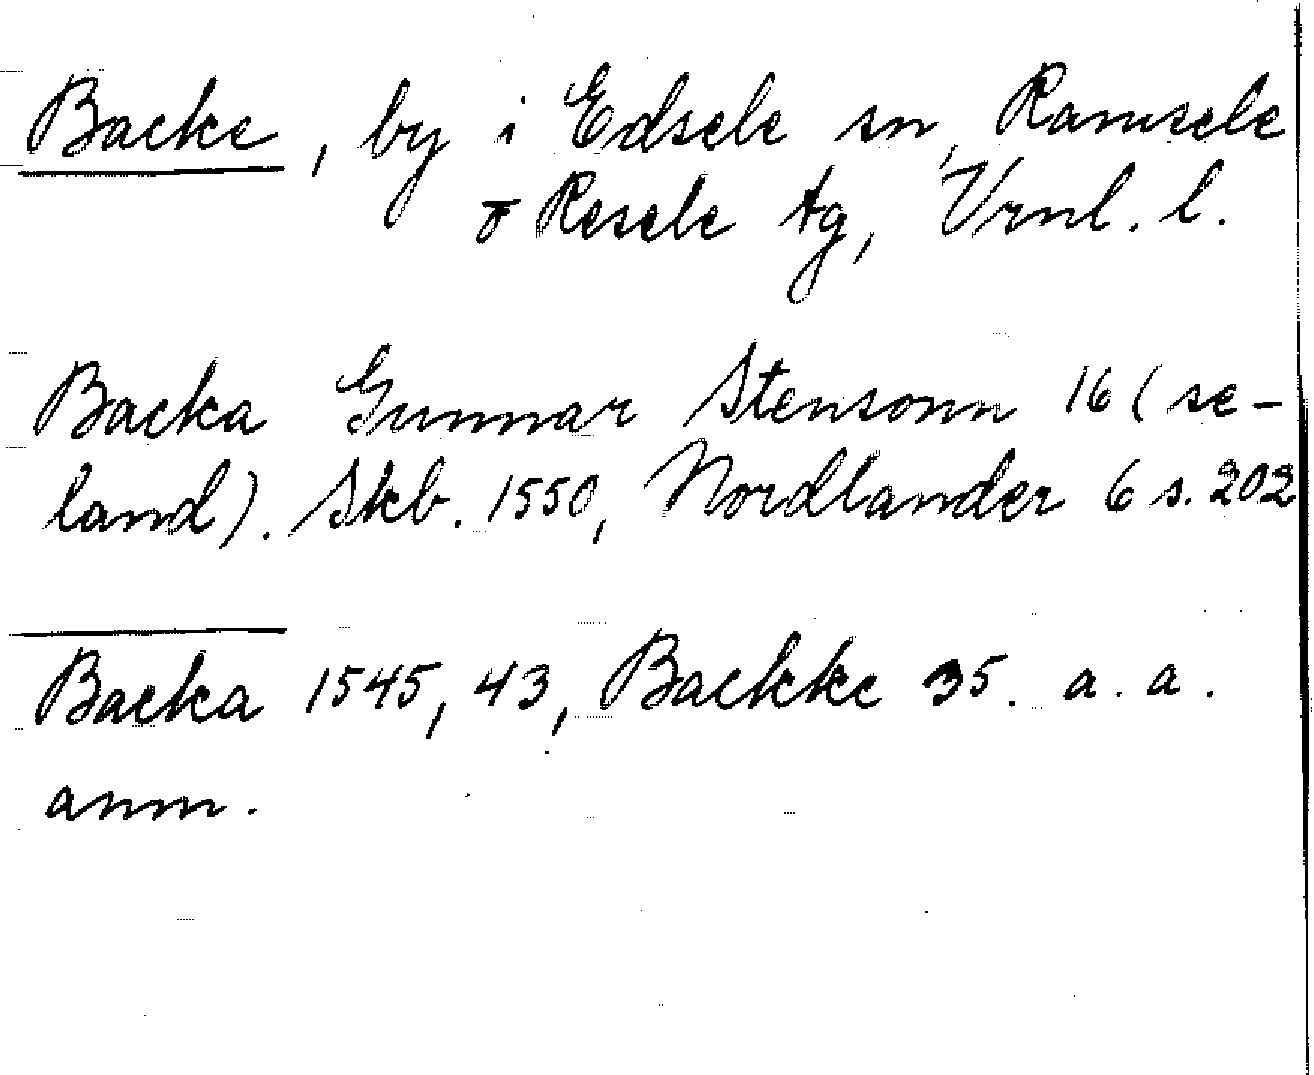 Backe, by i Edsele sn, Ramsele
o Resele tg, Vrnl. l.
Backa Gunnar Stensonn 16 (se-
land). Skb. 1550, Nordlander 6 s. 202
Backa 1545, 43, Backke 35. a. a.
anm.